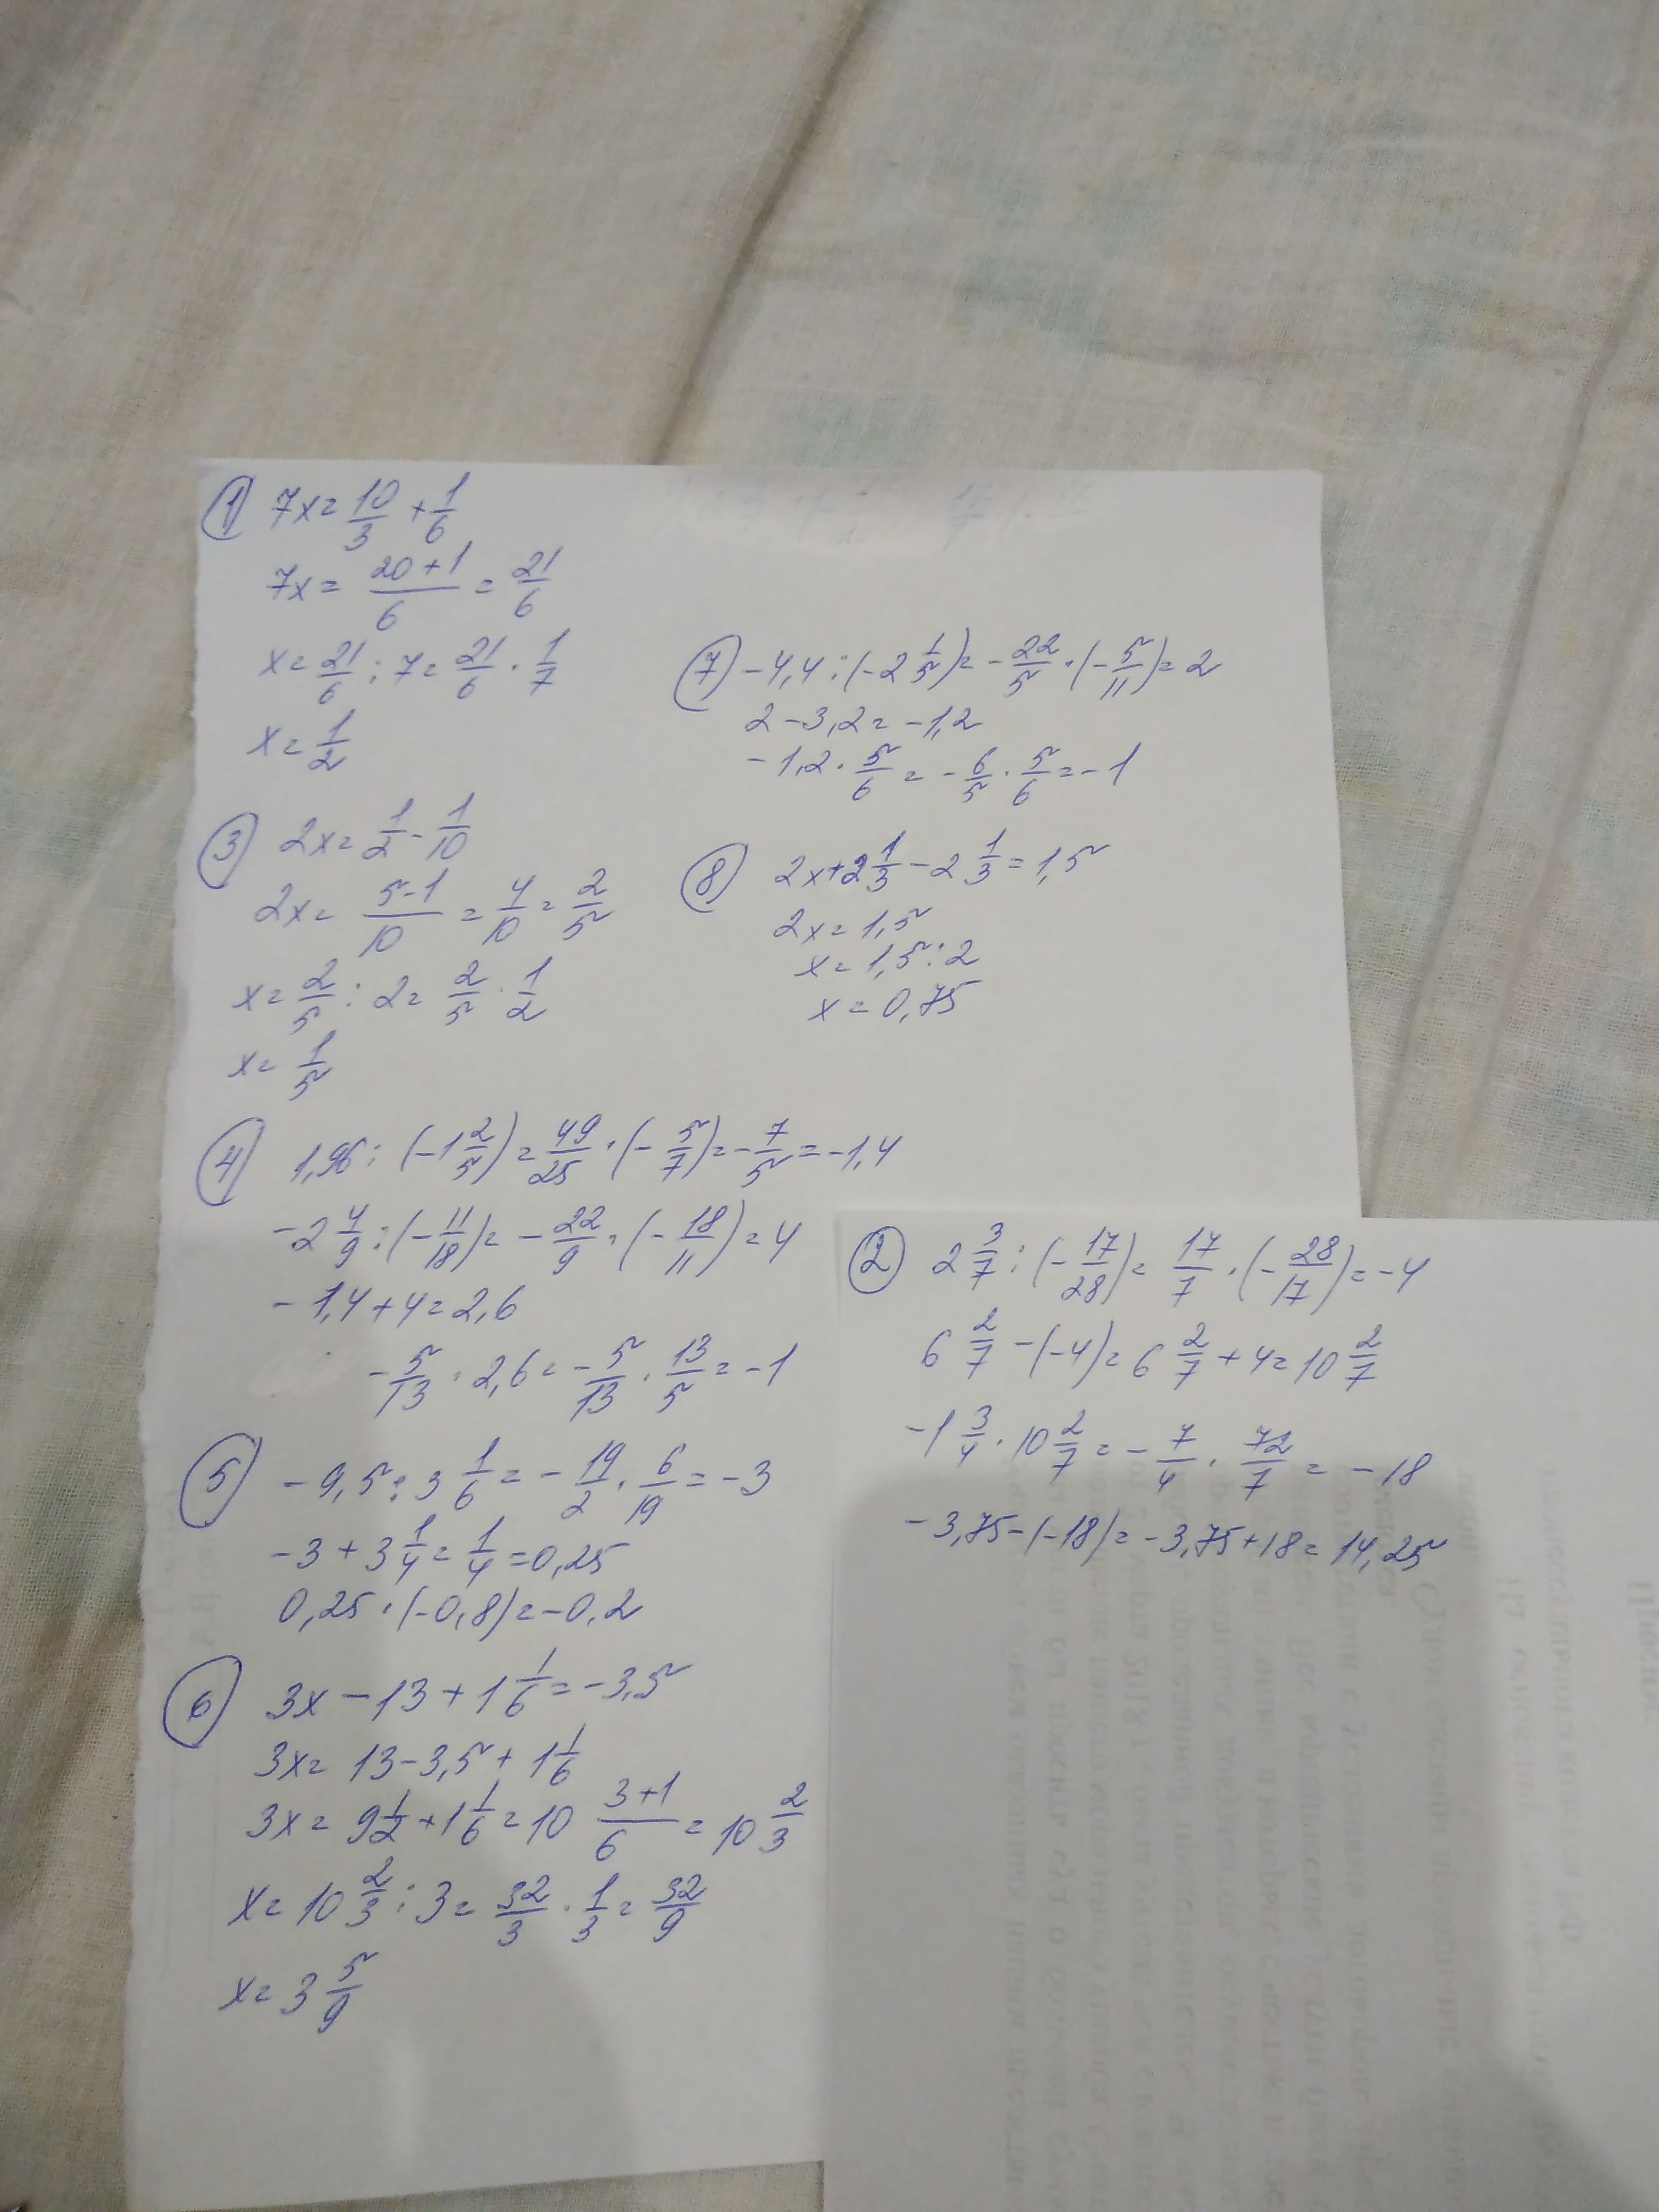 ① 7x = 10/3 + 1/6
7x = (20+1)/6 = 21/6
x = 21/6 : 7 = 21/6 · 1/7
x = 1/2
③ 2x = 1/2 - 1/10
2x = (5-1)/10 = 4/10 = 2/5
x = 2/5 : 2 = 2/5 · 1/2
x = 1/5
④ 1,96 : (-1 2/5) = 49/25 · (- 5/7) = - 7/5 = -1,4
-2 4/9 : (- 11/18) = - 22/9 · (- 18/11) = 4
- 1,4 + 4 = 2,6
- 5/13 · 2,6 = - 5/13 · 13/5 = - 1
⑤ - 9,5 : 3 1/6 = - 19/2 · 6/19 = - 3
-3 + 3 1/4 = 1/4 = 0,25
0,25 · (-0,8) = -0,2
⑥ 3x - 13 + 1 1/6 = -3,5
3x = 13 - 3,5 + 1 1/6
3x = 9 1/2 + 1 1/6 = 10 (3+1)/6 = 10 2/3
x = 10 2/3 : 3 = 32/3 · 1/3 = 32/9
x = 3 5/9
⑦ - 4,4 : (-2 1/5) = - 22/5 · (- 5/11) = 2
2 - 3,2 = -1,2
- 1,2 · 5/6 = - 6/5 · 5/6 = - 1
⑧ 2x + 2 1/3 - 2 1/3 = 1,5
2x = 1,5
x = 1,5 : 2
x = 0,75
② 2 3/7 : (- 17/28) = 17/7 · (- 28/17) = - 4
6 2/7 - (-4) = 6 2/7 + 4 = 10 2/7
-1 3/4 · 10 2/7 = - 7/4 · 72/7 = - 18
- 3,75 - (-18) = -3,75 + 18 = 14,25